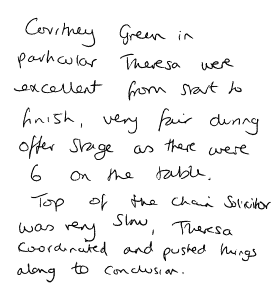 Courtney Green in
particular Theresa were
excellent from start to
finish, very fair during
offer stage as there were
6 on the table.
Top of the chain Solicitor
was very slow, Theresa
coordinated and pushed things
along to conclusion.